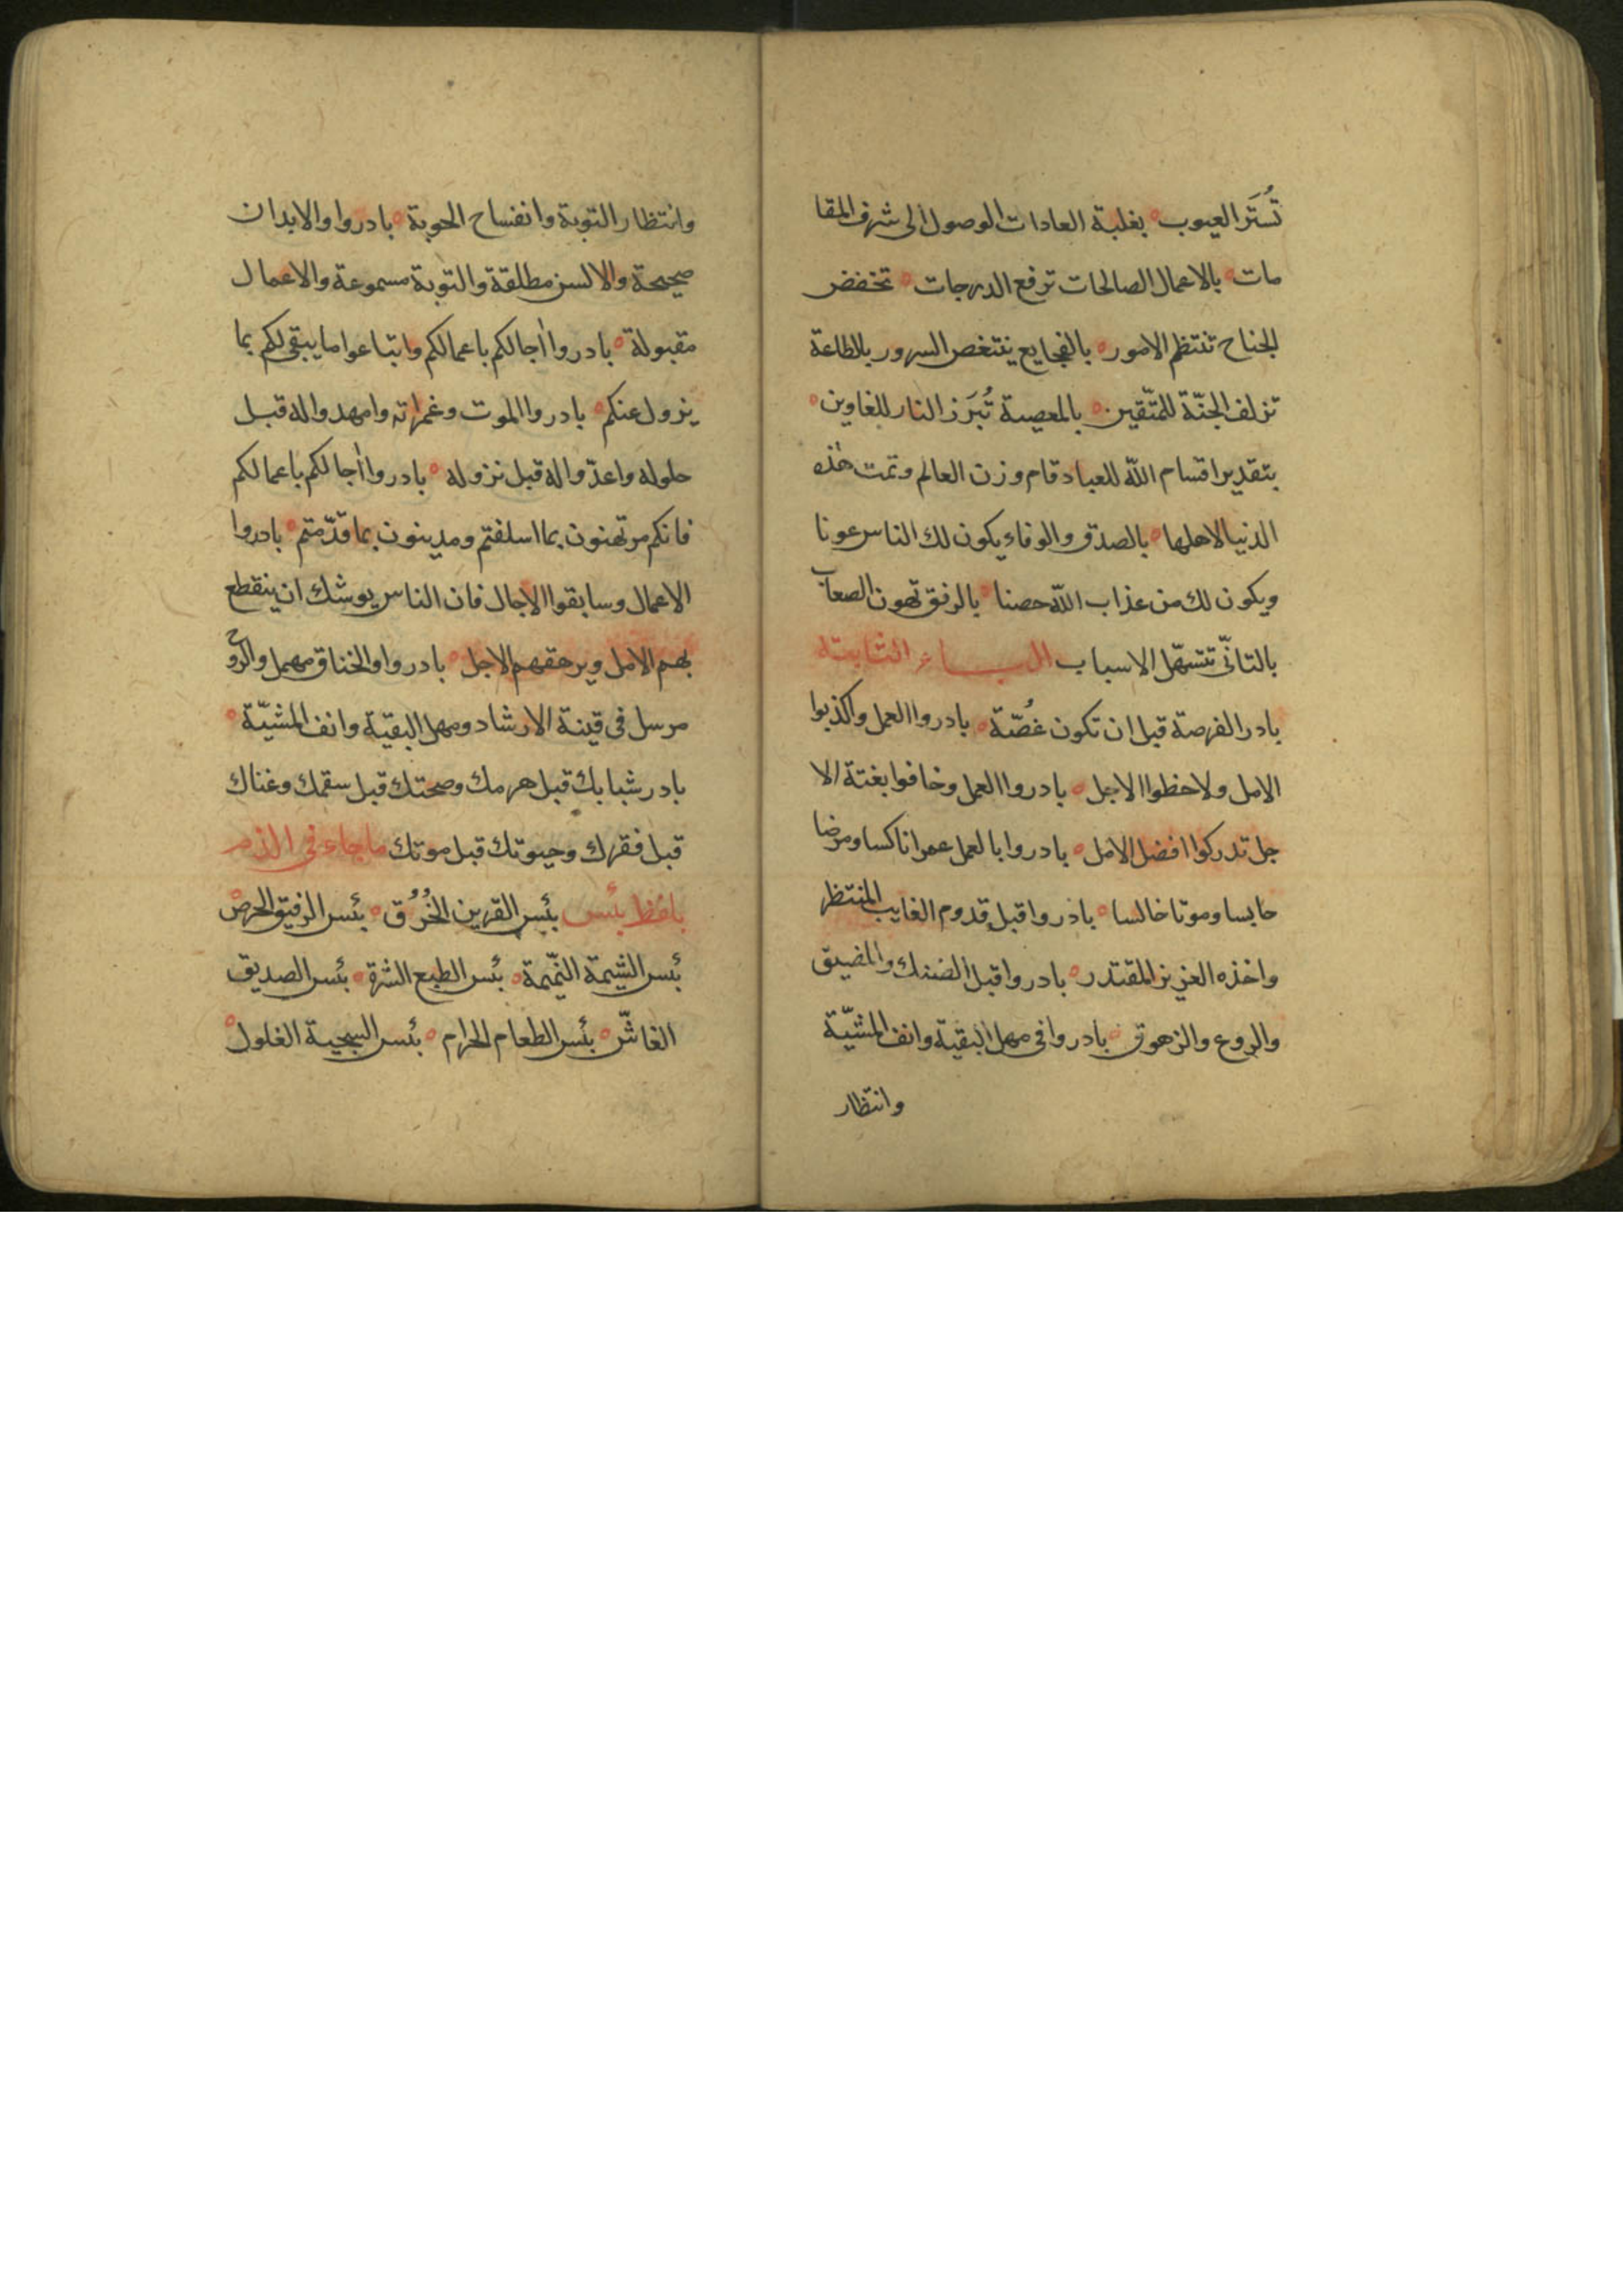 تُستَر العيوب ه بغلبة العادات الوصول الى شرف المقا
مات ه بالاعمال الصالحات ترفع الدرجات ه تخفض
الجناح تنتظم الامور ه بالفجايع يتنغص السرور بالطاعة
تزلف الجنّة للمتّقين ه بالمعصية تُبَرز النار للغاوين ه
بتقدير اقسام الله للعباد قام وزن العالم وتمت هذه
الدنيا لاهلها ه بالصدق والوفاء يكون لك الناس عونا
ويكون لك من عذاب الله حصنا ه بالرفق تهون الصعاب
بالتانّي تتسهّل الاسباب الباء الثابتة
بادر الفرصة قبل ان تكون غُصّة ه بادروا العمل واكذبوا
الامل ولاحظوا الاجل ه بادروا العمل وخافوا بغتة الا
جل تدركوا افضل الامل ه بادروا بالعمل عمرا ناكسا ومرضا
حابسا وموتا خالسا ه بادروا قبل قدوم الغايب المنتظر
واخذه العزيز المقتدر ه بادروا قبل الضنك والمضيق
والروع والزهوق ه بادروا في مهل البقية وانف المشيّة
وانتظار
وانتظار التوبة وانفساح الحوبة ه بادروا والابدان
صحيحة والالسن مطلقة والتوبة مسموعة والاعمال
مقبولة ه بادروا اجالكم باعمالكم وابتاعوا ما يبقى لكم بما
يزول عنكم ه بادروا الموت وغمراته وامهدوا له قبل
حلوله واعدّوا له قبل نزوله ه بادروا اجالكم باعمالكم
فانكم مرتهنون بما اسلفتم ومدينون بما قدّمتم ه بادروا
الاعمال وسابقوا الاجال فان الناس يوشك ان ينقطع
بهم الامل ويرهقهم الاجل ه بادروا والخناق مهمل والروح
مرسل في قينة الارشاد ومهل البقيّة وانف المشيّة ه
بادر شبابك قبل هرمك وصحتك قبل سقمك وغناك
قبل فقرك وحيوتك قبل موتك ما جاء في الذم
بلفظ بئس بئس القرين الخُرُق ه بئس الرفيق الحرص ه
بئس الشيمة النّميمة ه بئس الطبع الشره ه بئس الصديق
الغاشّ ه بئس الطعام الحرام ه بئس السجية الغلول ه